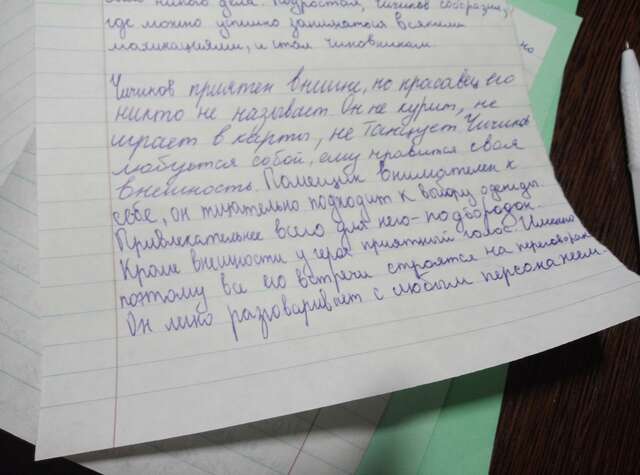 никого дела. Подростая, Чичиков сообразил,
где можно успешно заниматься всякими
махинациями, и стал чиновником.
Чичиков приятен внешне, но красавцем его
никто не называет. Он не курит, не
играет в карты, не танцует. Чичиков
любуется собой, ему нравится своя
внешность. Помещик внимателен к
себе, он тщательно подходит к выбору одежды.
Привлекательнее всего для него - подбородок.
Кроме внешности у героя приятный голос. Именно
поэтому все его встречи строятся на переговорах.
Он легко разговаривает с любым персонажем.
но